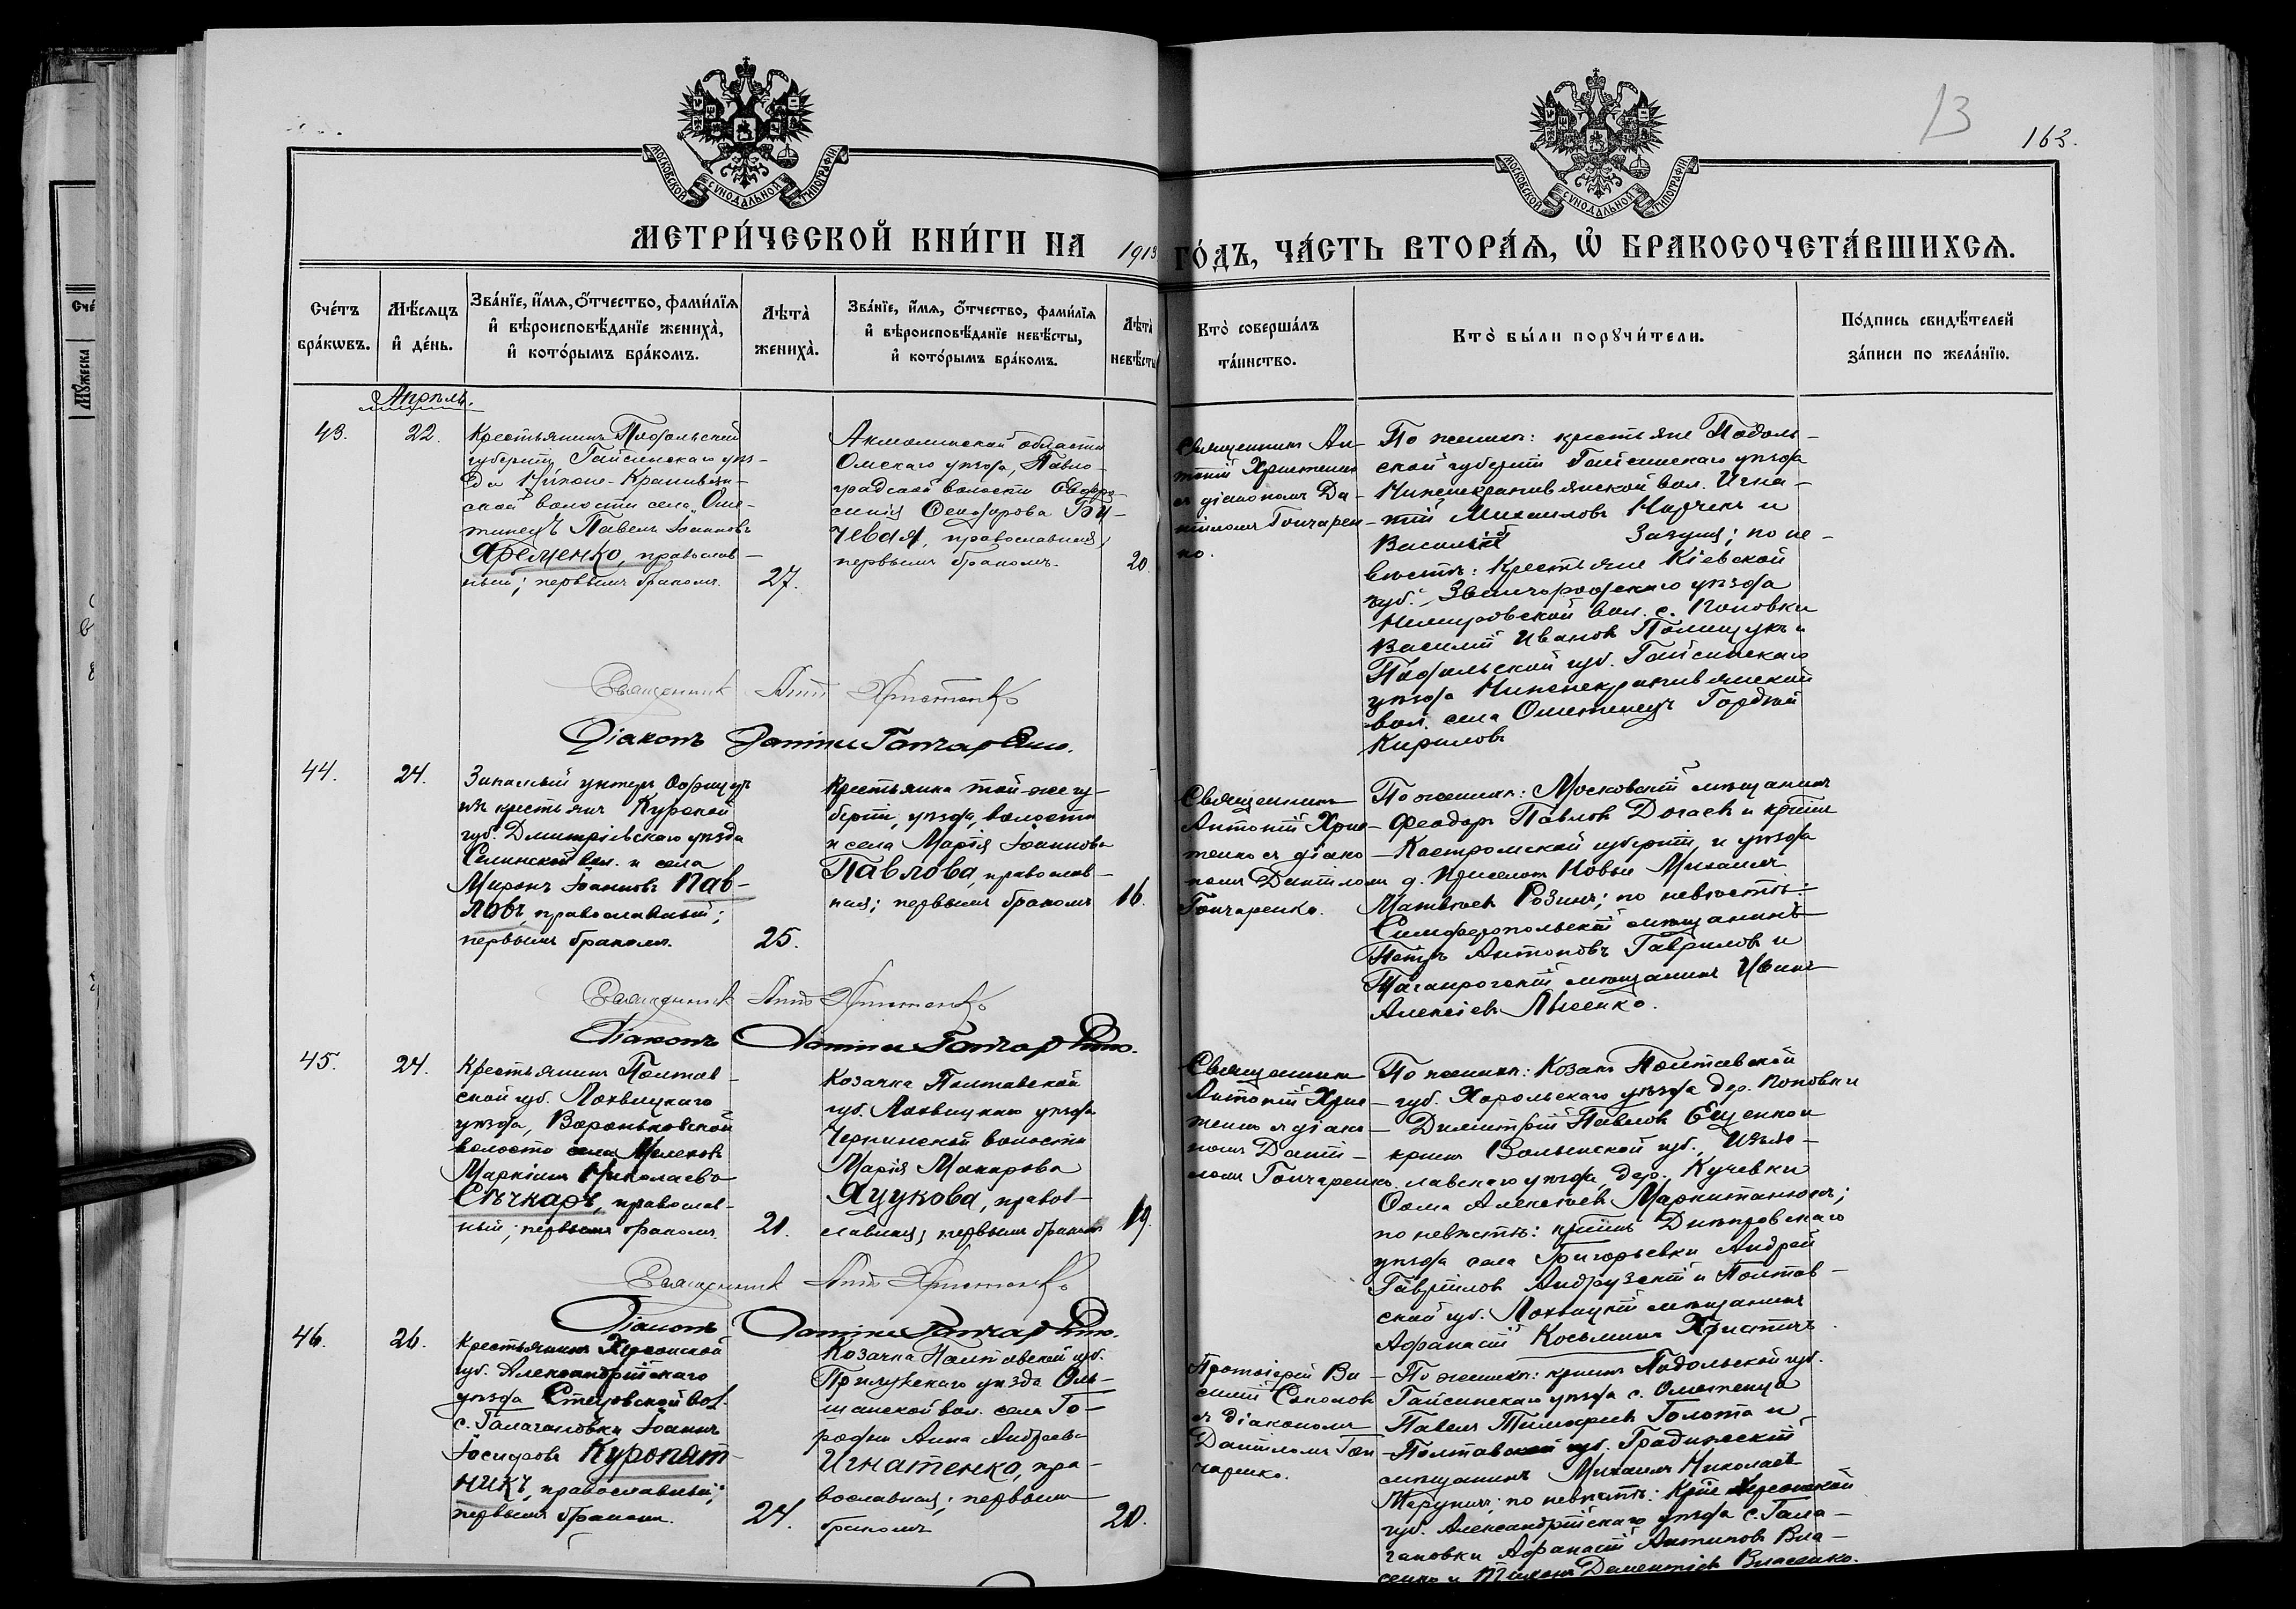 13
163.
МОСКОВСКОЙ СѴНОДАЛЬНОЙ ТИПОГРАФИИ
МОСКОВСКОЙ СѴНОДАЛЬНОЙ ТИПОГРАФИИ
МЕТРИ́ЧЕСКОЙ КНИ́ГИ НА 1913 ГО́ДЪ, ЧА́СТЬ ВТОРА́Я, Ѡ҆ БРАКОСОЧЕТА́ВШИХСЯ.
Сче́тъ
бра́кѡвъ.
Мѣ́сяцъ
и҆ де́нь.
Зва́нїе, и҆́мя, ѻ҆́тчество, фами́лїя
и҆ вѣроисповѣ́данїе жениха̀,
и҆ кото́рымъ бра́комъ.
Лѣта̀
жениха̀.
Зва́нїе, и҆́мя, ѻ҆́тчество, фами́лїя
и҆ вѣроисповѣ́данїе невѣ́сты,
и҆ кото́рымъ бра́комъ.
Лѣта̀
невѣ́сты
Кто̀ соверша́лъ
та́инство.
Кто̀ бы́ли порꙋчи́тели.
По́дпись свидѣ́телей
за́писи по жела́нїю.
Апрѣль.
43.
22.
Крестьянинъ Подольской
губерніи, Гайсинскаго уѣз-
да Нижне-Крапивян-
ской волости села Оме-
тинецъ Павелъ Іоанновъ
Яременко, православ-
ный; первымъ бракомъ.
27.
Акмолинской области
Омскаго уѣзда, Павло-
градской волости Евфро-
синія Феодорова Бы-
чевая, православная,
первымъ бракомъ.
20.
Священникъ Ан-
тоній Христенко
съ діакономъ Да-
ніиломъ Гончарен-
ко.
По женихѣ: крестьяне Подоль-
ской губерніи Гайсинскаго уѣзда
Нижнекрапивянской вол. Игна-
тій Михаиловъ Марчукъ и
Василій Загуля; по не-
вѣстѣ: Крестьяне Кіевской
губ. Звенигородскаго уѣзда
вол. с. Поповки
Василій Ивановъ Полищукъ и
Подольской губ. Гайсинскаго
уѣзда Нижнекрапивянской
вол. села Ометинецъ Гордій
Кириловъ
Священникъ Ант. Христенко
Діаконъ Даніилъ Гончаренко.
44.
24.
Запасный унтеръ офицеръ
изъ крестьянъ Курской
губ. Дмитріевскаго уѣзда
Селинской вол. и села
Миронъ Іоанновъ Пав-
ловъ, православный;
первымъ бракомъ.
25.
Крестьянка той-же гу-
берніи, уѣзда, волости
и села Марія Іоаннова
Павлова, православ-
ная; первымъ бракомъ
16.
Священникъ
Антоній Хрис-
тенко съ діако-
номъ Даніиломъ
Гончаренко.
По женихѣ: Московскій мѣщанинъ
Феодоръ Павловъ Догаевъ и кр-нинъ
Костромской губерніи, и уѣзда
д. Новы Михаилъ
Матвѣевъ Розинъ; по невѣстѣ:
Симферопольскій мѣщанинъ
Петръ Антоновъ Гавриловъ и
Таганрогскій мѣщанинъ Иванъ
Алексіевъ Лысенко.
Священникъ Ант. Христенко
Діаконъ Даніилъ Гончаренко.
45.
24.
Крестьянинъ Полтав-
ской губ. Лохвицкаго
уѣзда, Вороньковской
волости села Мелеховъ
Маркіанъ Николаевъ
Сѣчкарь, православ-
ный; первымъ бракомъ.
21.
Козачка Полтавской
губ. Лохвицкаго уѣзда
Чернинской волости
Марія Макарова
Яцукова, право-
славная; первымъ бракомъ
19.
Священникъ
Антоній Хрис-
тенко съ діако-
номъ Даніи-
ломъ Гончаренко.
По женихѣ: Козакъ Полтавской
губ. Хорольскаго уѣзда дер. Поповки
Димитрій Павловъ Еценко и
кр-нинъ Волынской губ., Изяс-
лавскаго уѣзда, дер. Кучевки
Фома Алексѣевъ Маркитанюкъ;
по невѣстѣ: кр-нинъ Днѣпровскаго
уѣзда села Григорьевки Андрей
Гавріиловъ Андрузскій и Полтав-
ской губ. Лохвицкій мѣщанинъ
Афанасій Косьминъ Христичъ.
Священникъ Ант. Христенко
Діаконъ Даніилъ Гончаренко.
46.
26.
Крестьянинъ Херсонской
губ. Александрійскаго
уѣзда Стецовской вол.
с. Галагановки Іоаннъ
Іосифовъ Куропят-
никъ, православный;
первымъ бракомъ.
24.
Козачка Полтавской губ.
Прилукскаго уѣзда Оль-
шанской вол. села Го-
родни Анна Андреева
Игнатенко, пра-
вославная; первымъ
бракомъ
20.
Протоіерей Ва-
силій Соколовъ
съ діакономъ
Даніиломъ Гон-
чаренко.
По женихѣ: кр-нинъ Подольской губ.
Гайсинскаго уѣзда с. Ометинца
Павелъ Тимофеевъ Голота и
Полтавской губ. Градижскій
мѣщанинъ Михаилъ Николаевъ
по невѣстѣ: Кр-не Херсонской
губ. Александрійскаго уѣзда с. Гала-
гановки Афанасій Антиповъ Вла-
сенко и Тихонъ Дементіевъ Власенко.